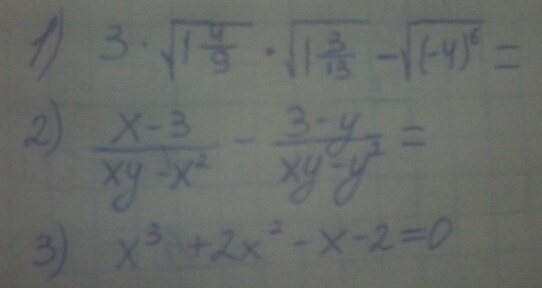 1) 3 · √(1 4/9) · √(1 3/13) − √((-4)⁶) =
2) (x − 3)/(xy − x²) − (3 − y)/(xy − y²) =
3) x³ + 2x² − x − 2 = 0